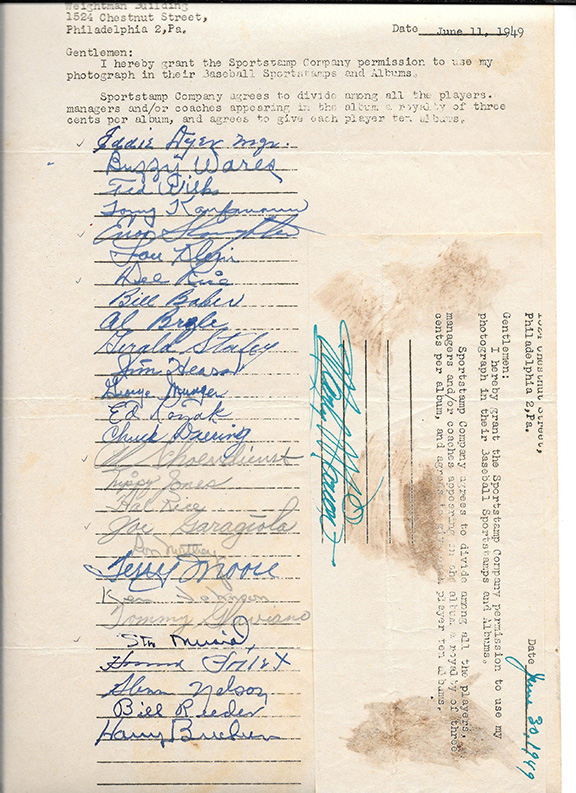 Weightman Building
1524 Chestnut Street,
Philadelphia 2,Pa.
Date June 11, 1949
Gentlemen:
I hereby grant the Sportstamp Company permission to use my
photograph in their Baseball Sportstamps and Albums.
Sportstamp Company agrees to divide among all the players.
managers and/or coaches appearing in the album a royalty of three
cents per album, and agrees to give each player ten albums.
Eddie Dyer mgr.
Buzzy Wares
Ted Wilks
Tony Kaufmann
Enos Slaughter
Lou Klein
Del Rice
Bill Baker
Al Brazle
Gerald Staley
Jim Hearn
George Munger
Ed Kazak
Chuck Diering
Al Schoendienst
Nippy Jones
Hal Rice
Joe Garagiola
Terry Moore
Ken Johnson
Tommy Glaviano
Stan Musial
Howard Pollet
Glenn Nelson
Bill Reeder
Harry Brecheen
Chestnut Street,
Philadelphia 2,Pa.
Date June 30, 1949
Gentlemen:
I hereby grant the Sportstamp Company permission to use my
photograph in their Baseball Sportstamps and Albums.
Sportstamp Company agrees to divide among all the players,
managers and/or coaches appearing in the album a royalty of three
cents per album, and agrees to give each player ten albums.